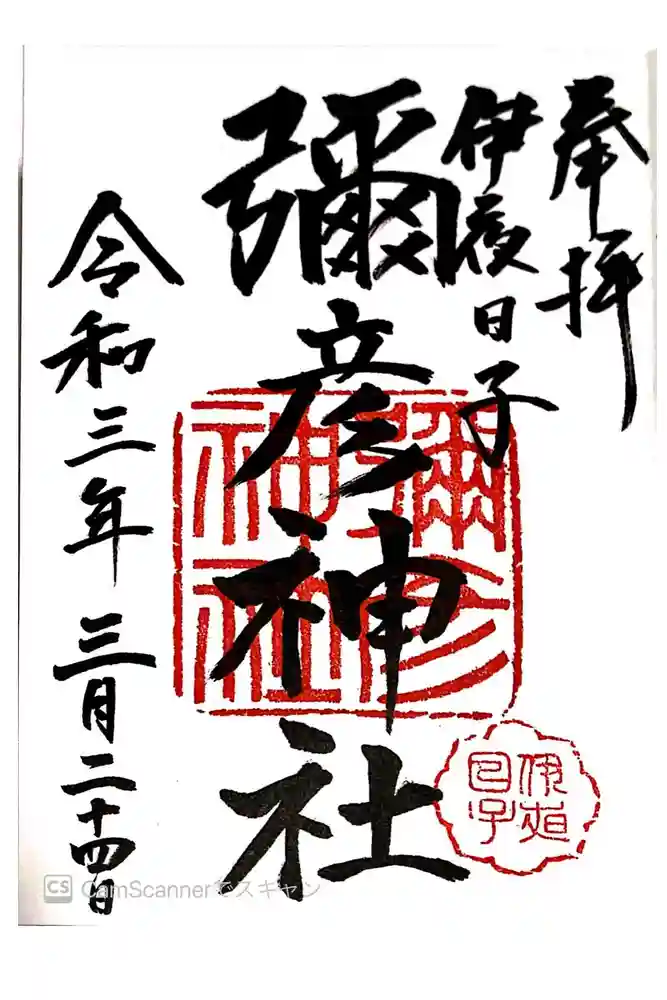 奉拝
伊夜日子
彌彦神社
令和三年三月二十四日
彌彦
神社
伊夜
日子
CS CamScannerでスキャン